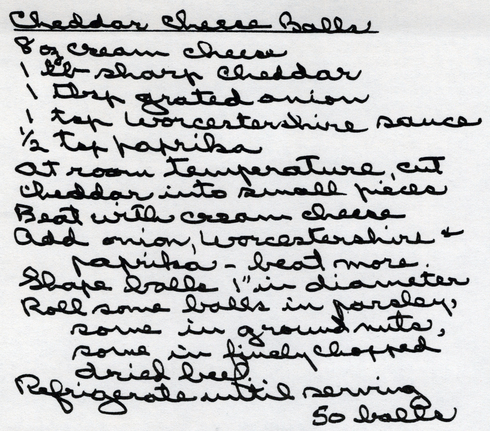 Cheddar Cheese Balls
8 oz cream cheese
1 lb sharp cheddar
1 tbsp grated onion
1 tsp Worcestershire sauce
1/2 tsp paprika
At room temperature, cut
cheddar into small pieces
Beat with cream cheese
Add onion, Worcestershire +
paprika - beat more.
Shape balls 1" in diameter
Roll some balls in parsley,
some in ground nuts,
some in finely chopped
dried beef
Refrigerate until serving
50 balls